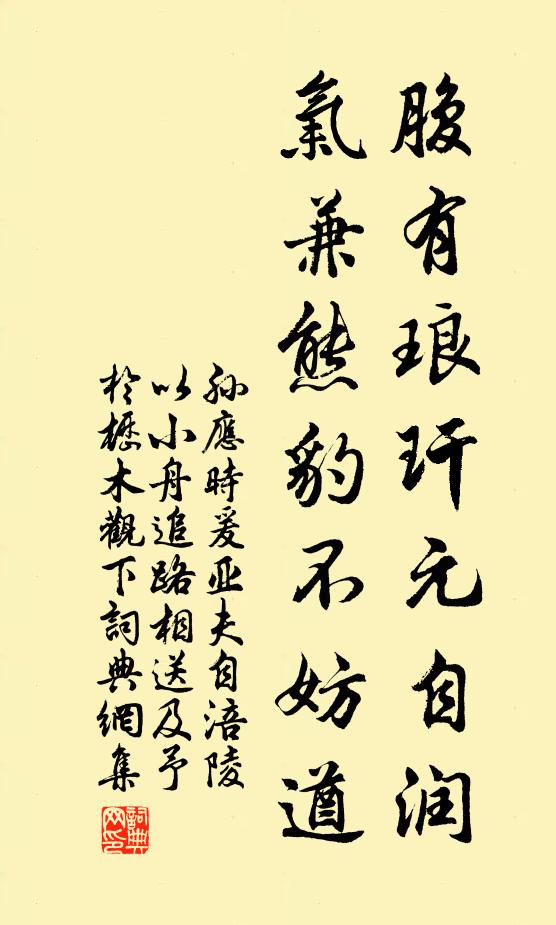 腹有琅玕元自润
氣兼熊豹不妨遒
孙應時爰亚夫自涪陵
以小舟追路相送及予
於櫪木觀下詞典網集
詞典网印